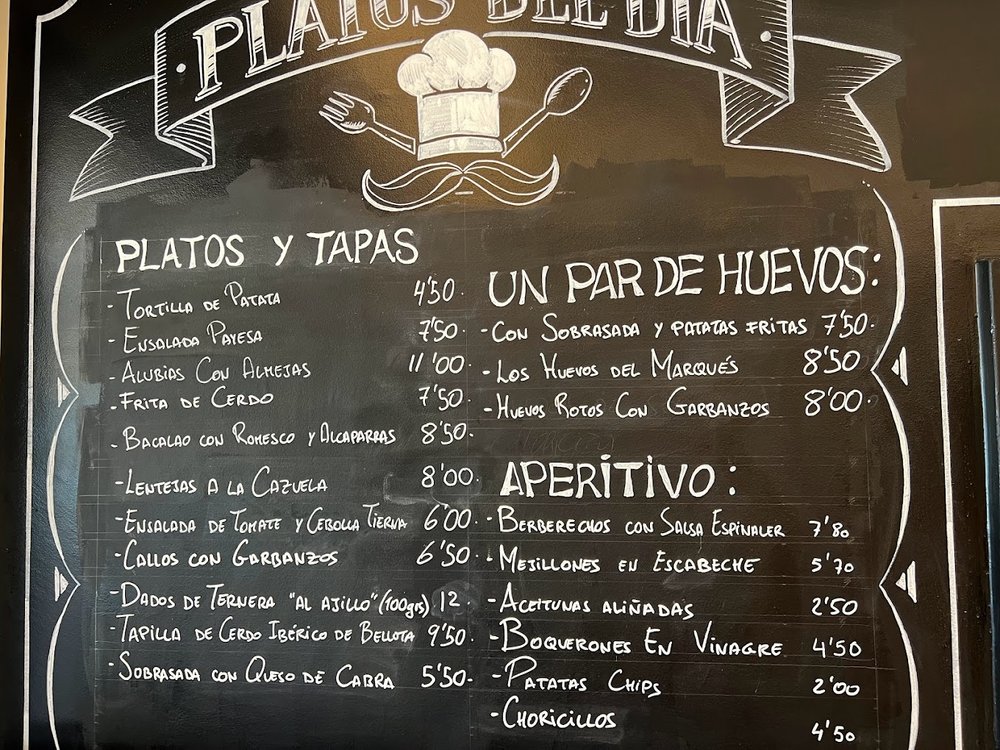 PLATOS DEL DÍA
PLATOS Y TAPAS
- TORTILLA DE PATATA 4'50.
- ENSALADA PAYESA 7'50.
- ALUBIAS CON ALMEJAS 11'00.
- FRITA DE CERDO 7'50.
- BACALAO CON ROMESCO Y ALCAPARRAS 8'50.
- LENTEJAS A LA CAZUELA 8'00.
- ENSALADA DE TOMATE Y CEBOLLA TIERNA 6'00.
- CALLOS CON GARBANZOS 6'50.
- DADOS DE TERNERA "AL AJILLO" (100grs) 12.
- TAPILLA DE CERDO IBÉRICO DE BELLOTA 9'50.
- SOBRASADA CON QUESO DE CABRA 5'50.
UN PAR DE HUEVOS:
- CON SOBRASADA Y PATATAS FRITAS 7'50.
- LOS HUEVOS DEL MARQUÉS 8'50
- HUEVOS ROTOS CON GARBANZOS 8'00.
APERITIVO:
- BERBERECHOS CON SALSA ESPINALER 7'80
- MEJILLONES EN ESCABECHE 5'70
- ACEITUNAS ALIÑADAS 2'50
- BOQUERONES EN VINAGRE 4'50
- PATATAS CHIPS 2'00
- CHORICILLOS 4'50